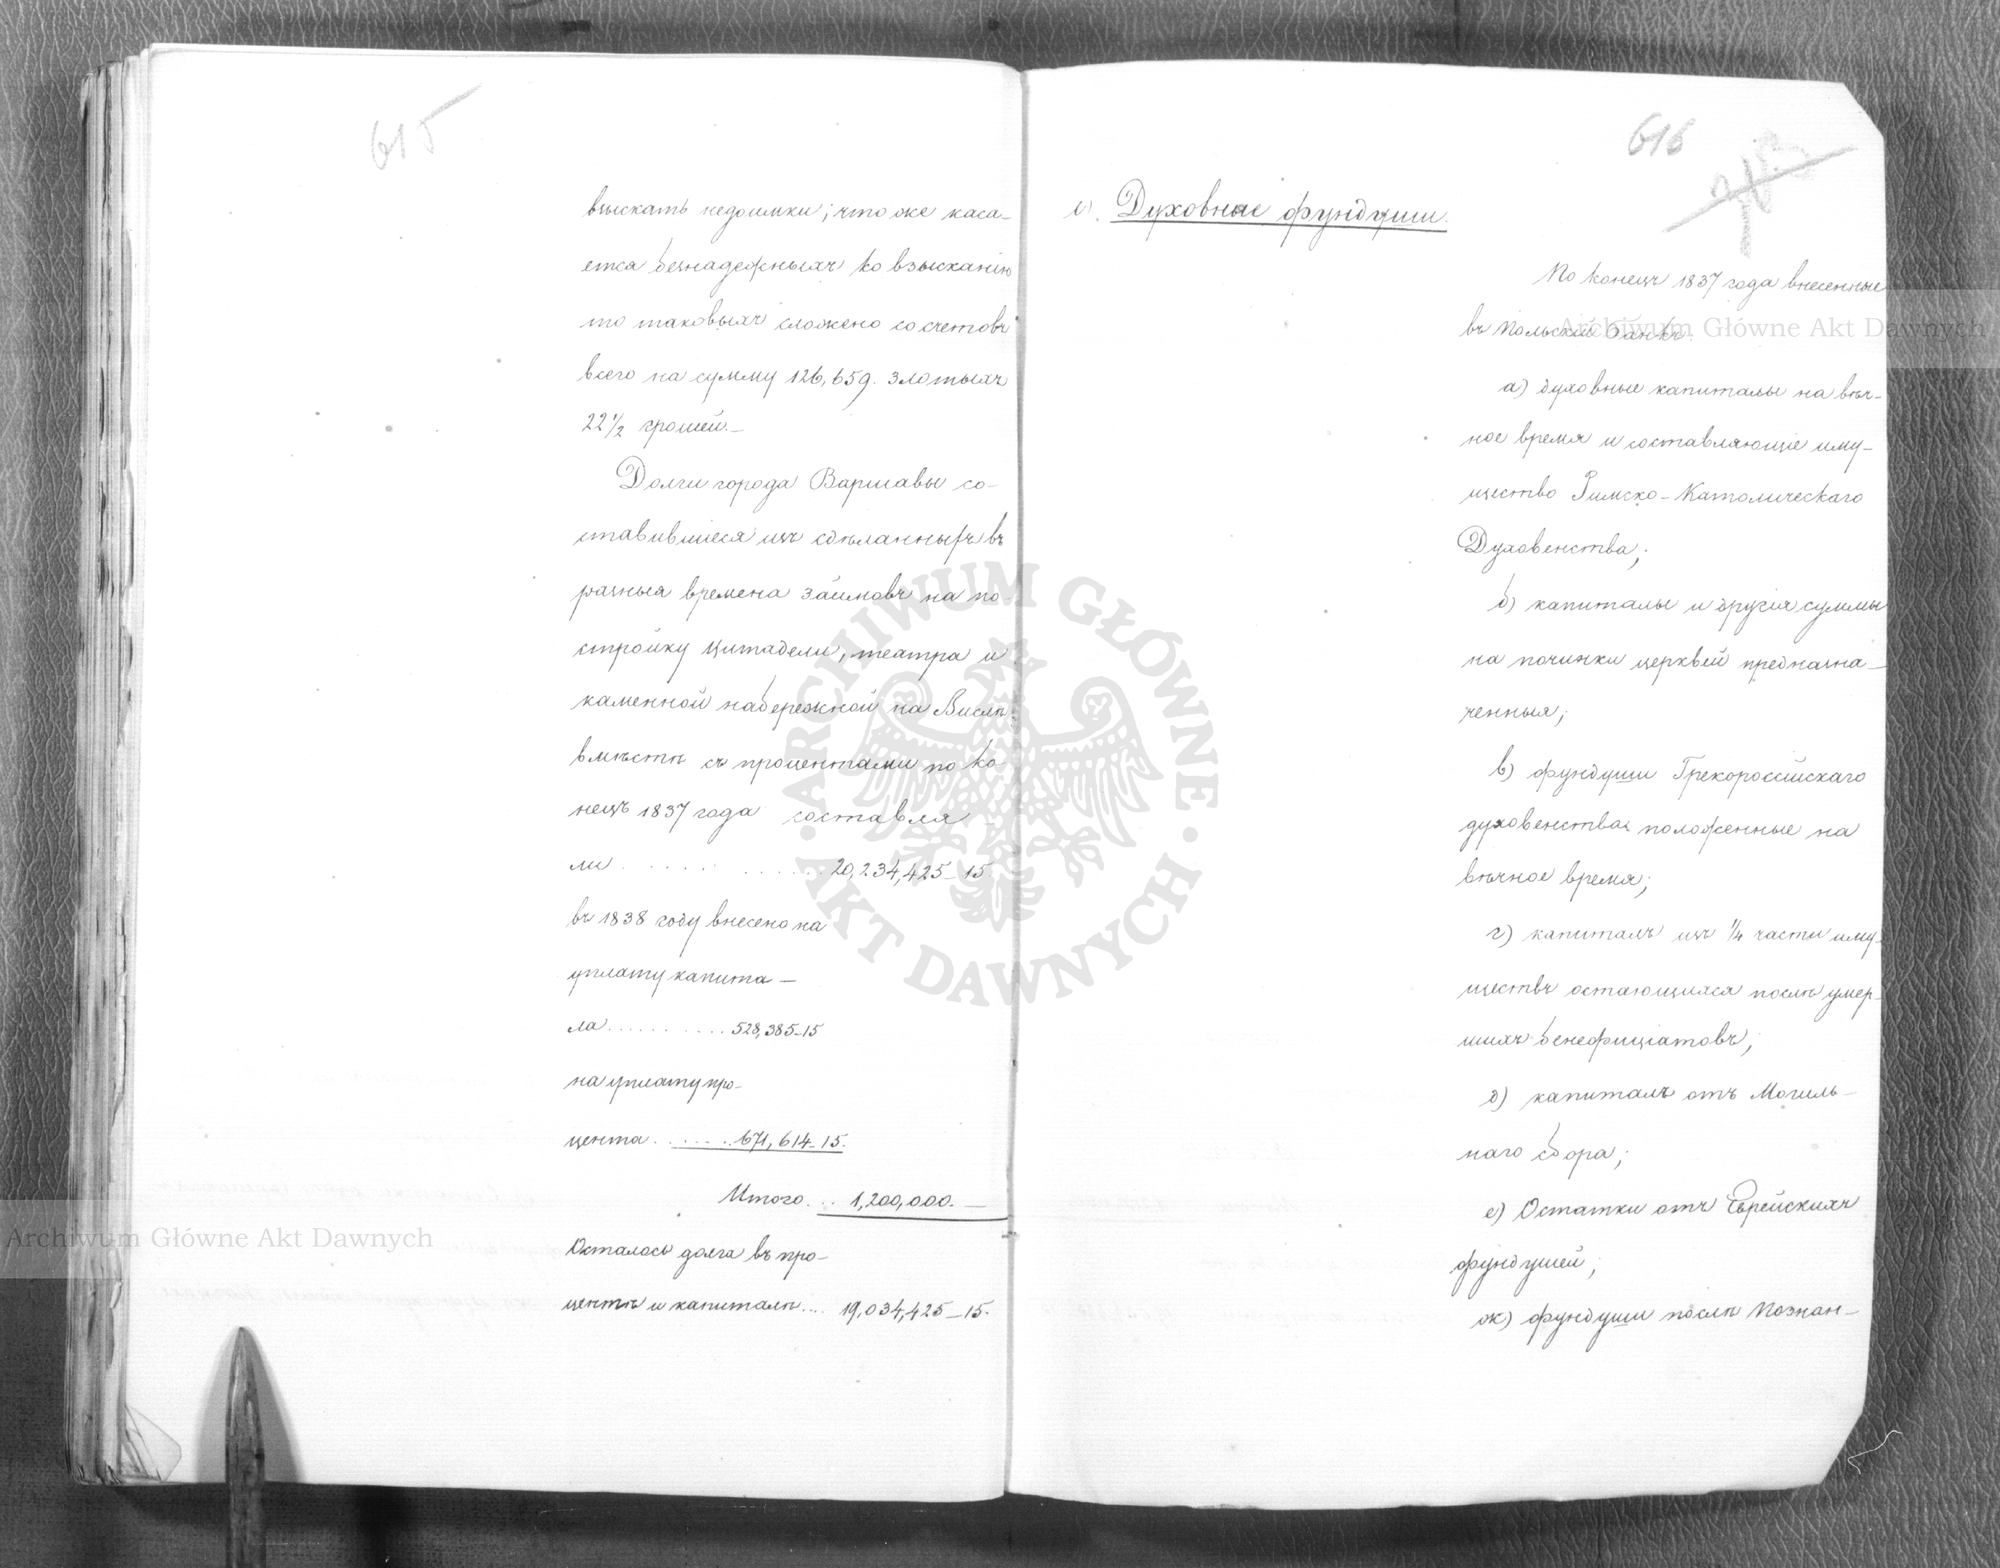 615
взыскать недоимки; что же каса-
ется безнадежныхъ ко взысканію
то таковыхъ сложено со счетовъ
всего на сумму 126,659. злотыхъ
22 1/2 грошей.—
Долги города Варшавы со-
ставившіеся изъ сдѣланныхъ въ
разныя времена займовъ на по-
стройку Цитадели, театра и
каменной набережной на Вислѣ,
вмѣстѣ съ процентами по ко-
нецъ 1837 года составля-
ли . . . . . . . . . . 20,234,425—15.
въ 1838 году внесено на
уплату капита—
ла . . . . . . . . . . 528,385—15
на уплату про-
цента . . . . . . 671,614—15.
Итого . . . 1,200,000.—
Осталось долга въ про-
центѣ и капиталѣ . . . 19,034,425—15.
616
Духовные фундуши.
По конецъ 1837 года внесенные
въ Польскій Банкъ:
а) духовные капиталы на вѣч-
ное время и составляющіе иму-
щество Римско-Католическаго
Духовенства;
б) капиталы и другія суммы
на починки церквей предназна—
ченныя;
в) фундуши Грекороссійскаго
духовенства положенные на
вѣчное время;
г) капиталъ изъ 1/4 части иму-
ществъ остающихся послѣ умер-
шихъ бенефиціатовъ;
д) капиталъ отъ Могиль—
наго сбора;
е) Остатки отъ Еврейскихъ
фундушей;
ж) фундуши послѣ Познан—
Archiwum Główne Akt Dawnych
Archiwum Główne Akt Dawnych
ARCHIWUM GŁÓWNE · AKT DAWNYCH ·